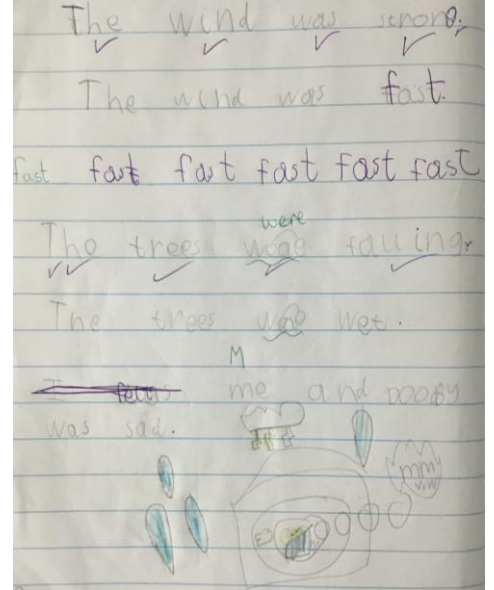 The wind was strong.
The wind was fast.
fast fast fast fast fast fast
were
The trees falling.
The trees wet.
M
me and POOBY
was sad.
mm